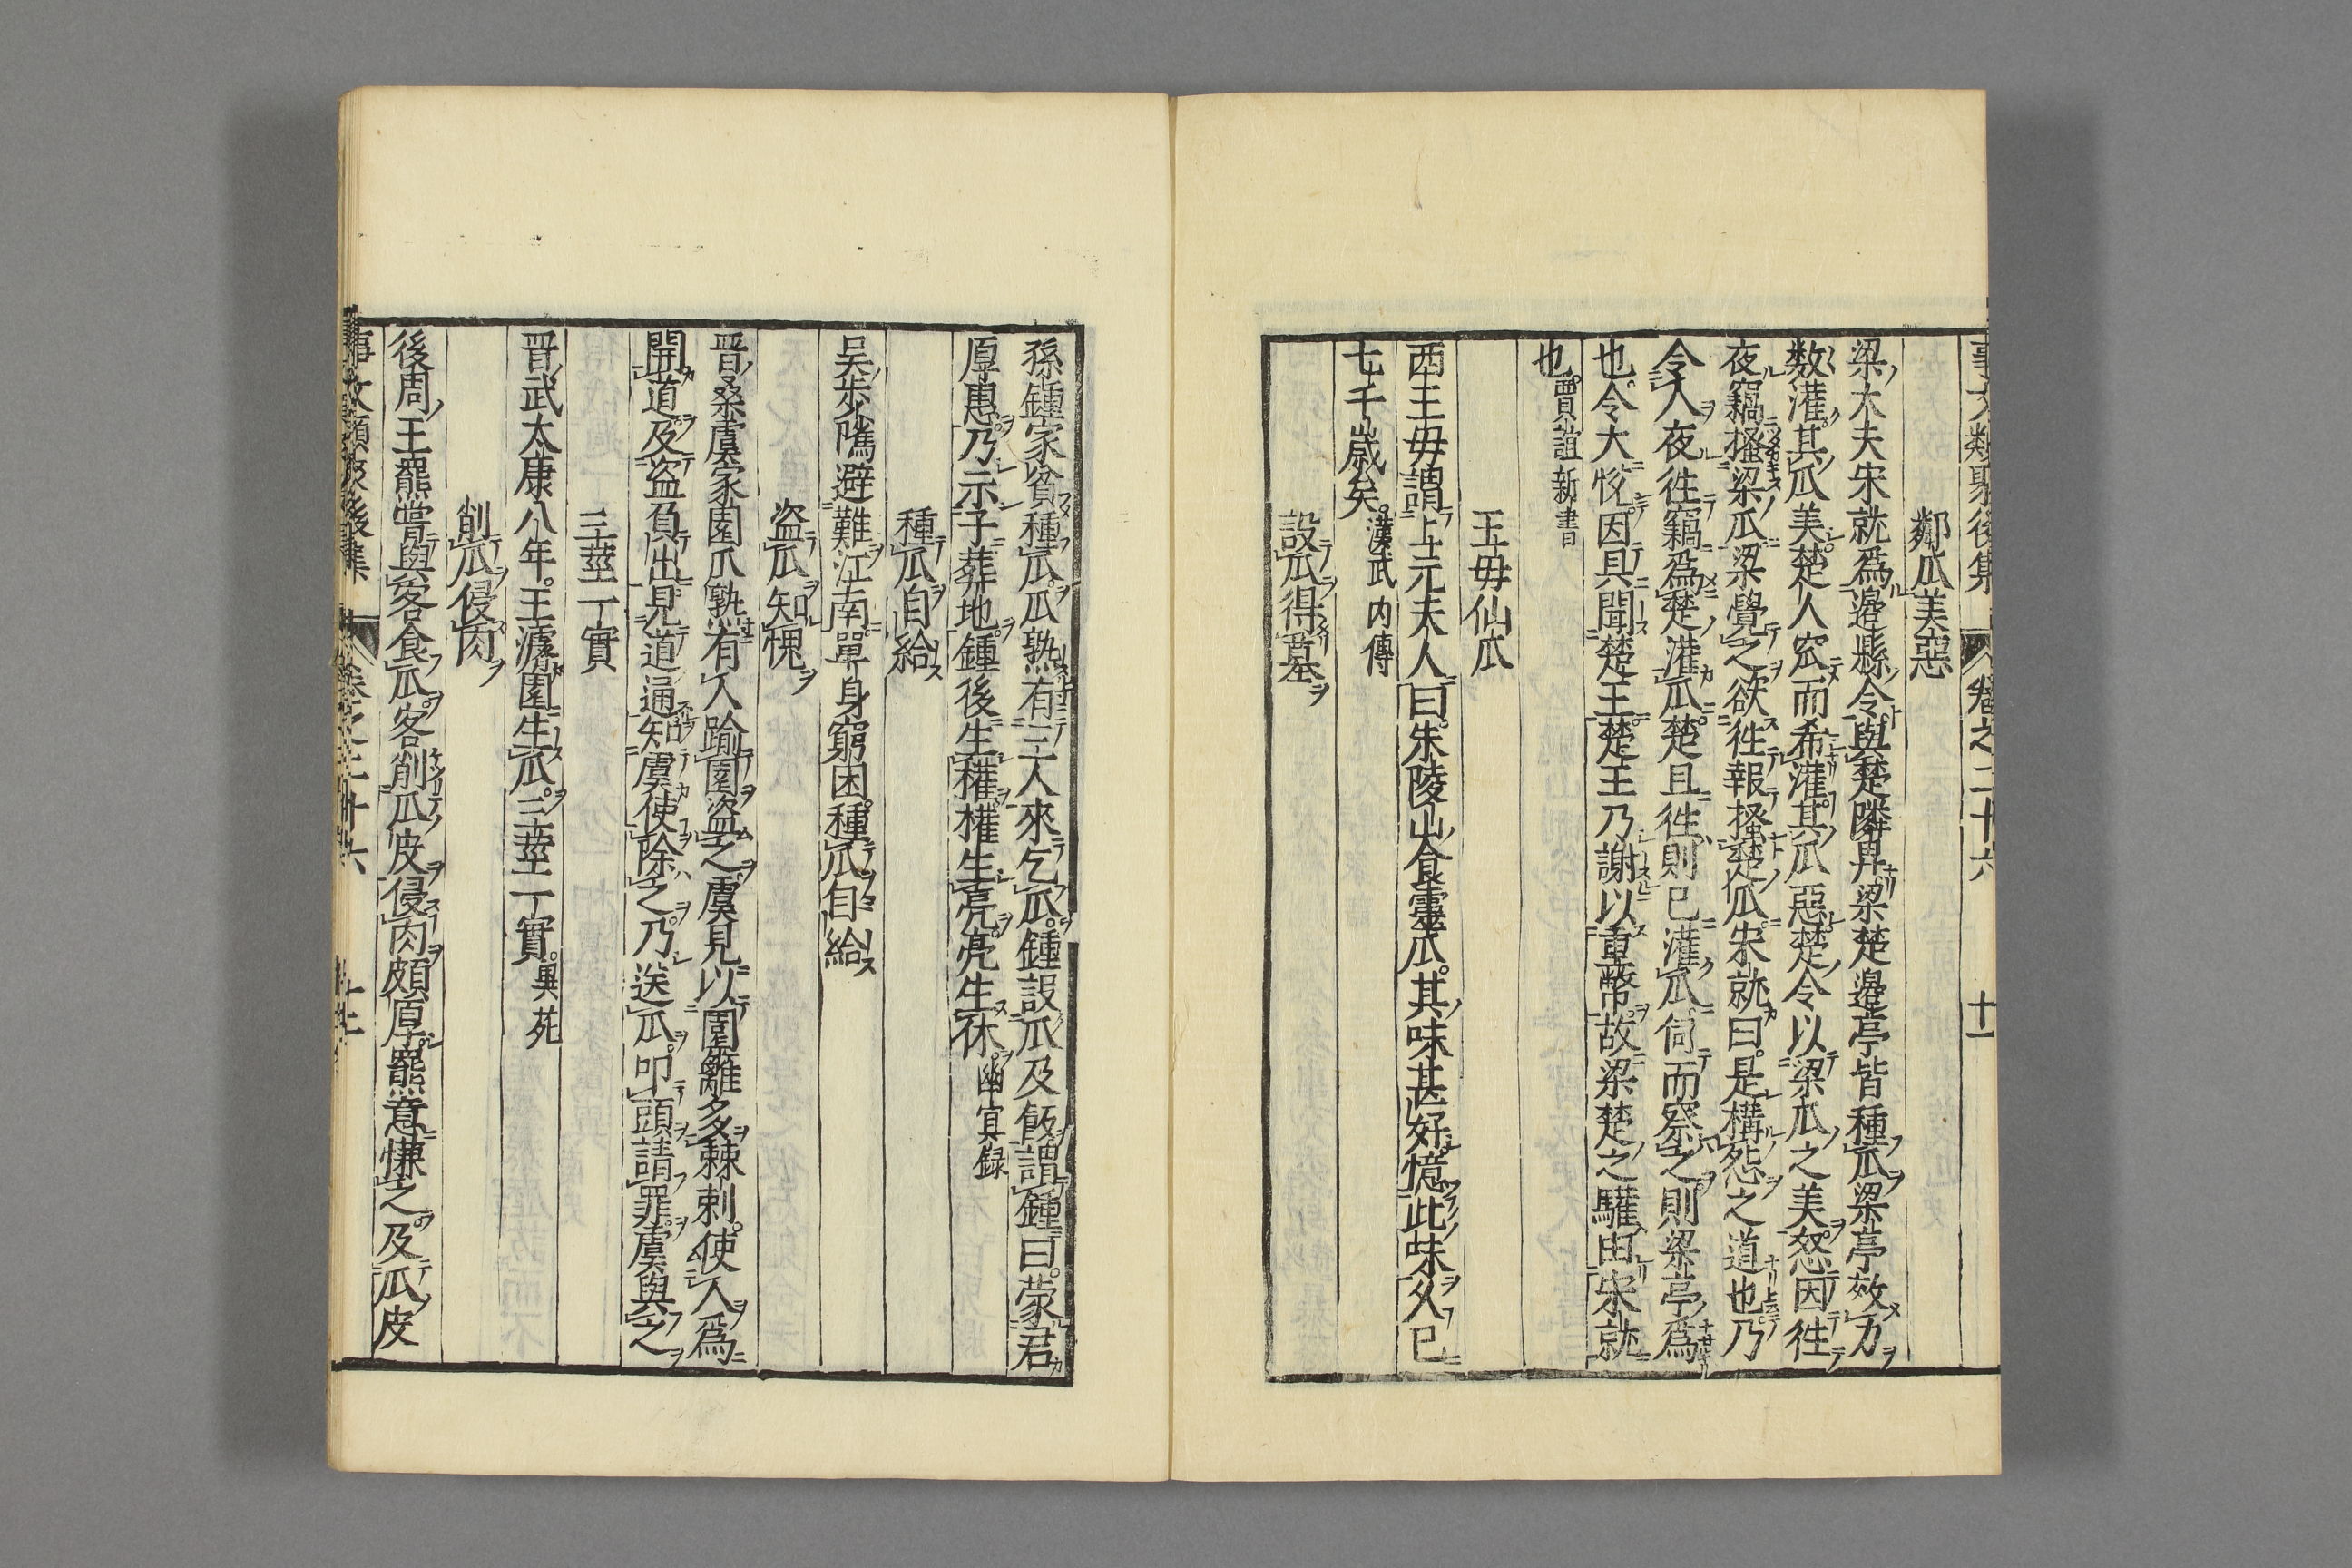 事文類聚後集 卷之二十六 十一
鄰瓜美惡
梁大夫宋就爲邉縣令與楚隣界梁楚邉亭皆種瓜梁亭效力
数灌其瓜美楚人窳而希灌其瓜惡楚令以梁瓜之美怒因徃
夜竊搔梁瓜梁覺之欲徃報搔楚瓜宋就曰是構怨之道也乃
令人夜徃竊爲楚灌瓜楚旦徃則已灌瓜伺而察之則梁亭爲
也令大悅因具聞楚王楚王乃謝以重幣故梁楚之驩由宋就
也賈誼新書
王母仙瓜
西王母謂上元夫人曰朱陵山食靈瓜其味甚好憶此味久已
七千歳矣漢武内傳
設瓜得墓
孫鍾家貧種瓜瓜熟有三人來乞瓜鍾設瓜及飯謂鍾曰蒙君
厚惠乃示子葬地鍾後生權權生亮亮生休幽冥録
種瓜自給
吴步隲避難江南單身窮困種瓜自給
盗瓜知愧
晋桑虞家園瓜熟有人踰園盗之虞見以園籬多棘刺使人爲
開道及盗負出見道通知虞使除之乃送瓜叩頭請罪虞與之
三莖一實
晋武太康八年王濬園生瓜三莖一實異苑
削瓜侵肉
後周王羆嘗與客食瓜客削瓜皮侵肉頗厚羆意慊之及瓜皮
事文類聚後集 卷之二十六 十二